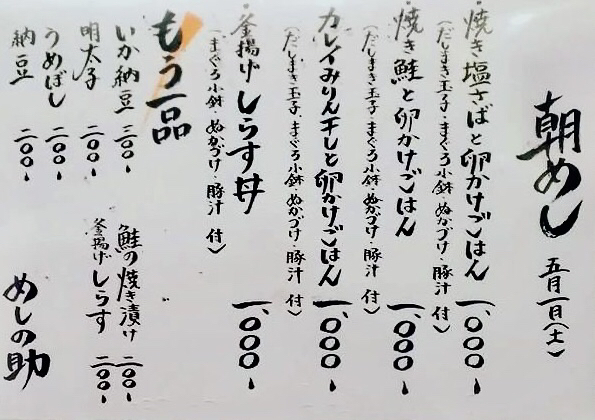 朝めし 五月一日(土)
・焼き塩さばと卵かけごはん 一、〇〇〇-
(だしまき玉子・まぐろ小鉢・ぬかづけ・豚汁 付)
・焼き鮭と卵かけごはん 一、〇〇〇-
(だしまき玉子・まぐろ小鉢・ぬかづけ・豚汁 付)
・カレイみりん干しと卵かけごはん 一、〇〇〇-
(だしまき玉子、まぐろ小鉢・ぬかづけ・豚汁 付)
・釜揚げしらす丼 一、〇〇〇-
(まぐろ小鉢・ぬかづけ・豚汁 付)
もう一品
いか納豆 三〇〇-
明太子 二〇〇-
うめぼし 二〇〇-
納豆 二〇〇-
鮭の焼き漬け 二〇〇-
釜揚げしらす 二〇〇-
めしの助